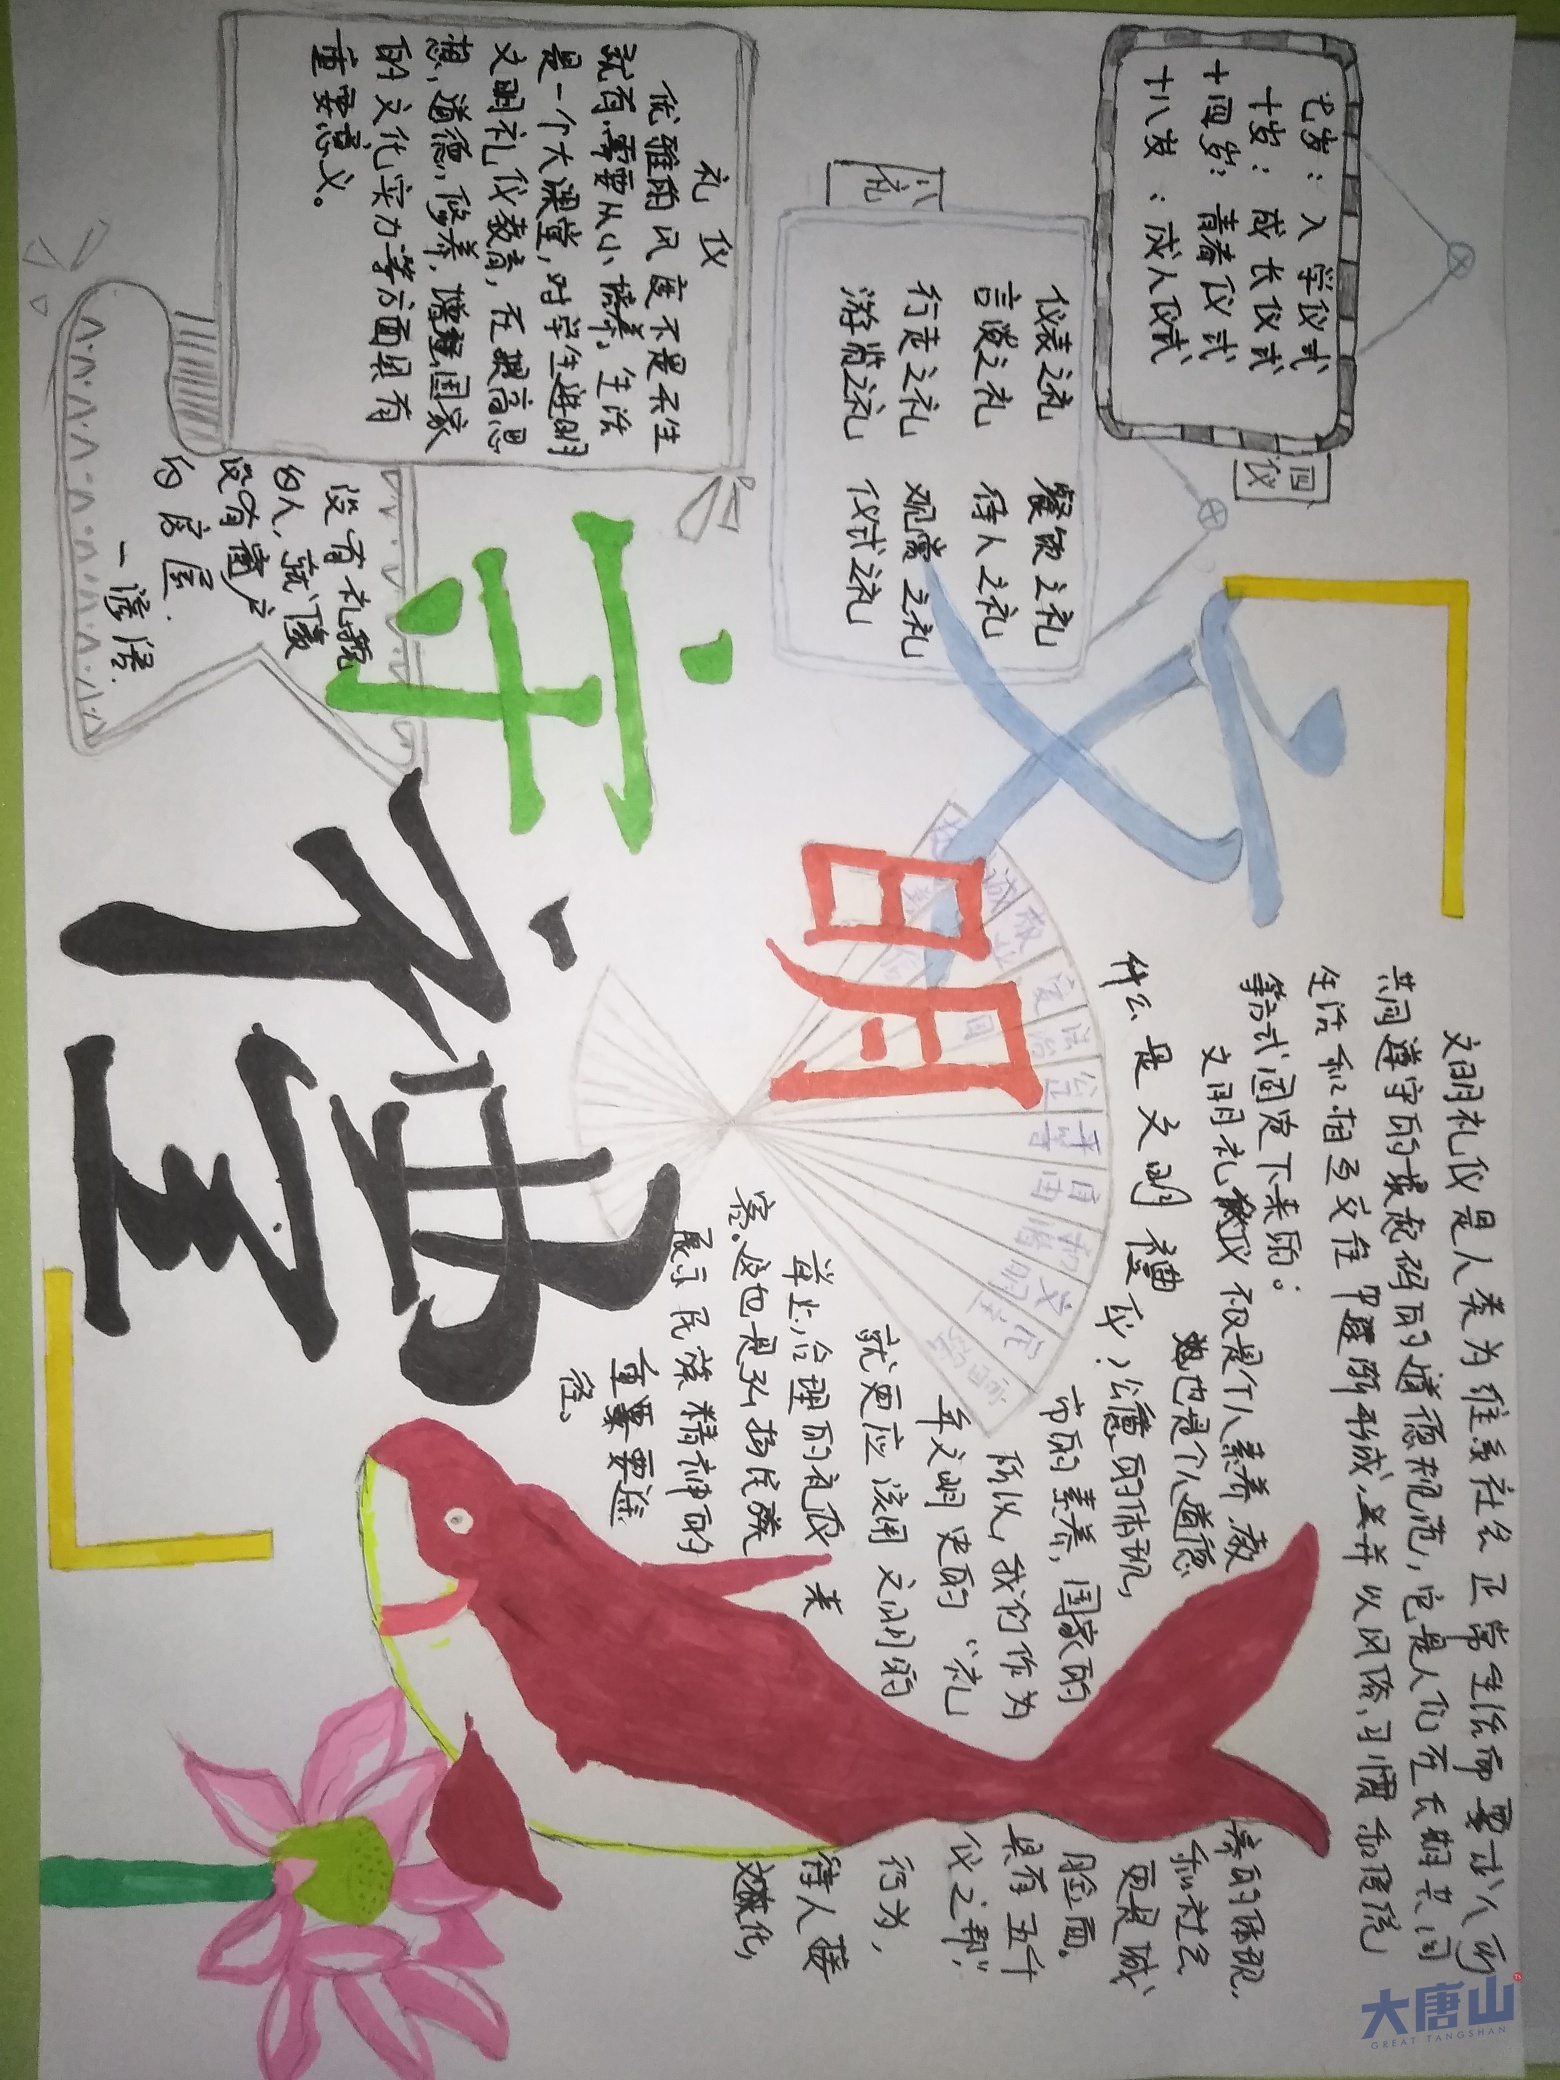 文明
守禮
四仪
七岁：入学仪式
十岁：成长仪式
十四岁：青春仪式
十八岁：成人仪式
八礼
仪表之礼 餐饮之礼
言谈之礼 待人之礼
行走之礼 观赏之礼
游览之礼 仪式之礼
礼仪
优雅的风度不是天生
就有，需要从小培养，生活
是一个大课堂，对学生进明
文明礼仪教育，在提高思
想，道德，修养，增强国家
的文化实力等方面具有
重要意义。
没有礼貌
的人，就像
没有窗户
的房屋
一谚语
文明礼仪是人类为维系社会正常生活而要求人所
共同遵守的最起码的道德规范，它是人们在长期共同
生活和相互交往中逐渐形成，并以风俗、习惯和传统
等方式固定下来的。
什么是文明禮仪？
文明礼仪不仅是个人素养、教养的体现，
也是个人道德和社会
公德的体现，更是城
市的素养，国家的脸面。
所以，我们作为具有五千
年文明史的“礼仪之帮”，
就更应该用文明的行为，
举止，合理的礼仪来待人接
客。这也是弘扬民族文化，
展示民族精神的
重要途
径。
富强
民主
文明
和谐
自由
平等
公正
法治
爱国
敬业
诚信
大唐山
GREAT TANGSHAN